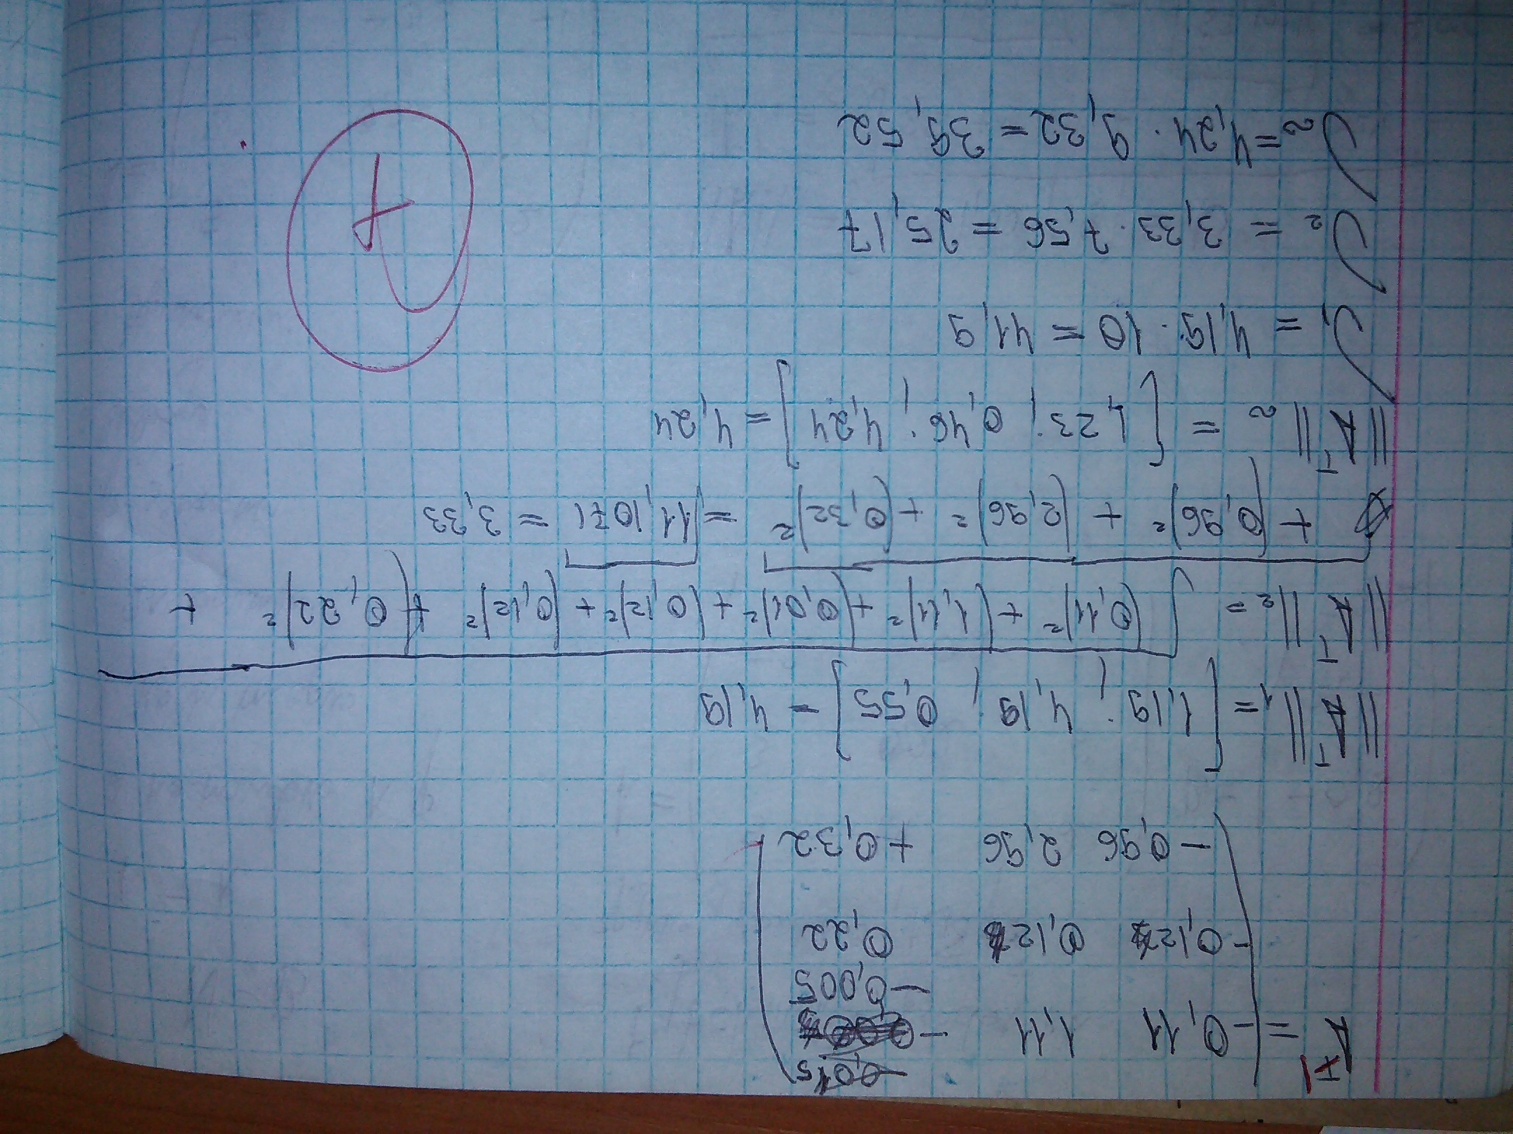 A⁻¹ = ( -0,11 1,11 -0,005
-0,12 0,12 0,22
-0,96 2,96 +0,32 )
||A⁻¹||₁ = [1,19; 4,19; 0,55] = 4,19
||A⁻¹||₂ = √(0,11)² + (1,11)² + (0,01)² + (0,12)² + (0,12)² + (0,22)² +
+ (0,96)² + (2,96)² + (0,32)² = √11,1071 = 3,33
||A⁻¹||∞ = [1,23; 0,46; 4,24] = 4,24
ν₁ = 4,19 · 10 = 41,9
ν₂ = 3,33 · 7,56 = 25,17
ν∞ = 4,24 · 9,32 = 39,52
+